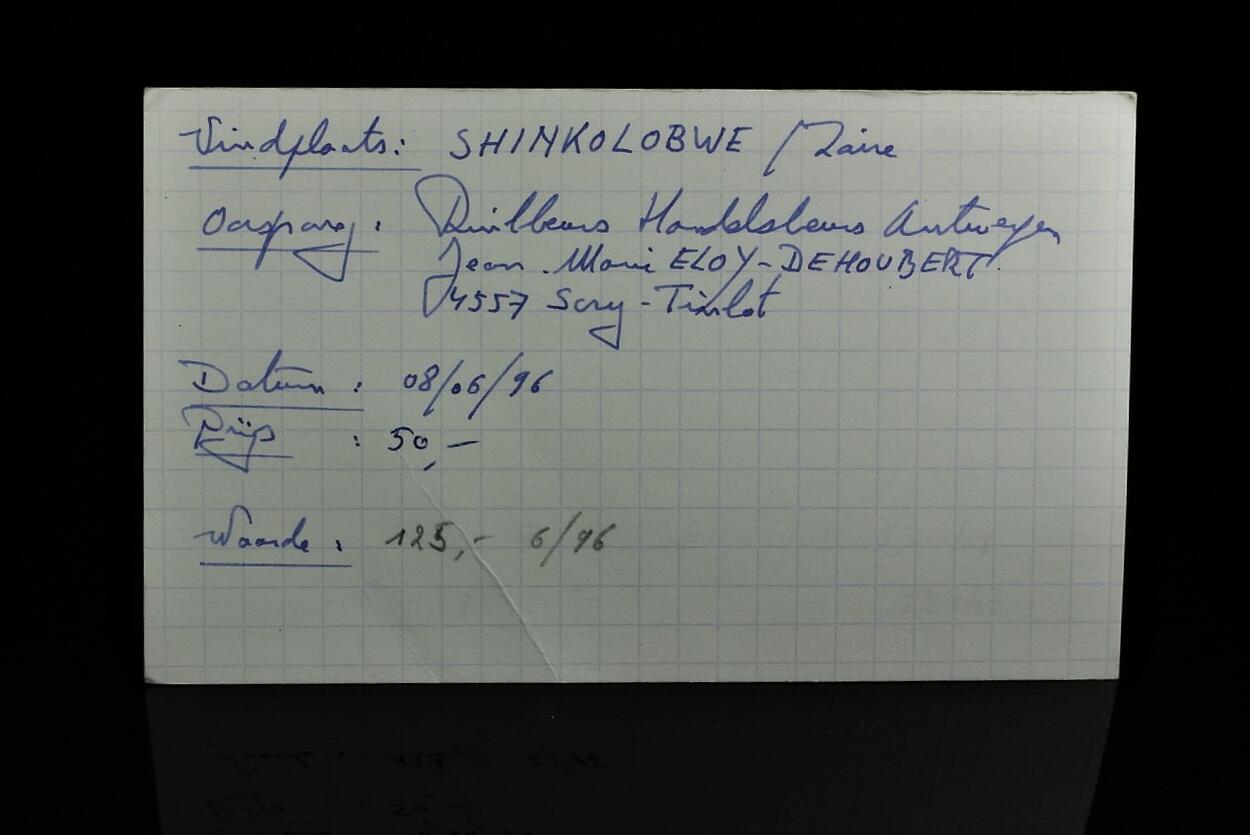 Vindplaats: SHINKOLOBWE / Zaïre
Oorsprong: Ruilbeurs Handelsbeurs Antwerpen
Jean-Marie ELOY-DEHOUBERT.
4557 Scry-Tinlot
Datum: 08/06/96
Prijs: 50,—
Waarde: 125,- 6/96